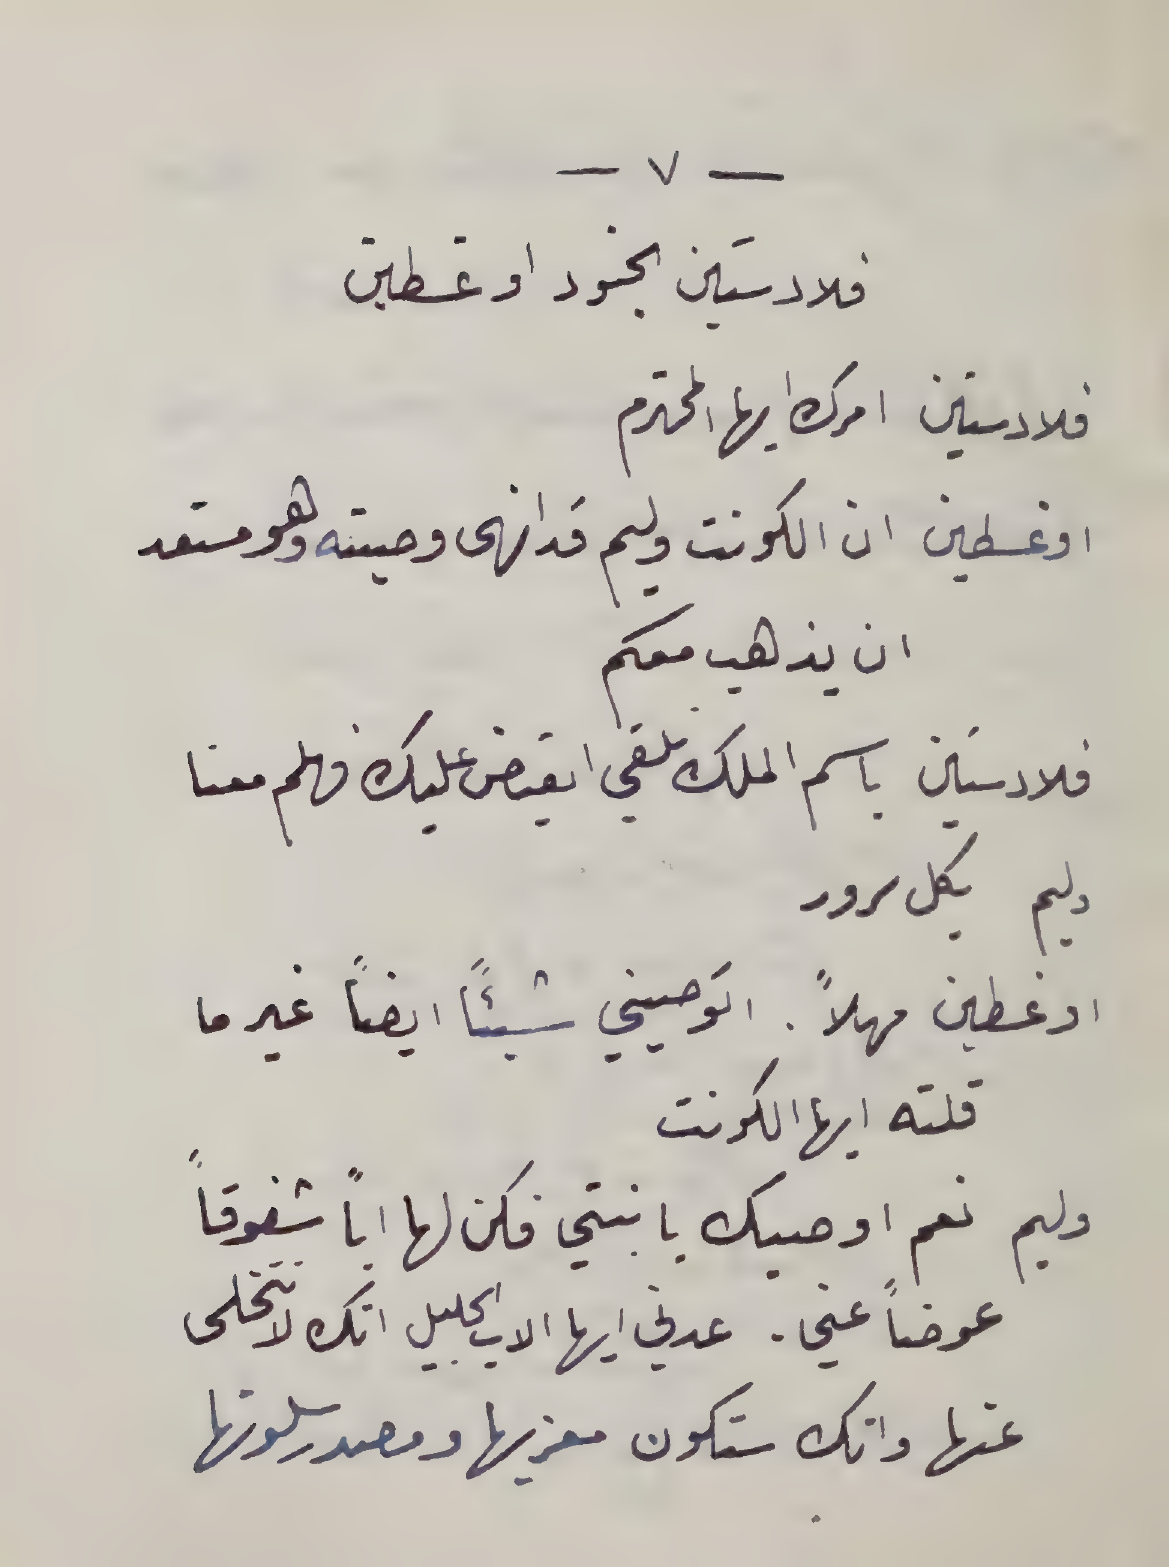 — ٧ —
فلادستين الجنود اوغسطين
فلادستين امرك ايها المحترم
اوغسطين ان الكونت وليم قد انهى وصيته وهو مستعد
ان يذهب معكم
فلادستين باسم الملك نلقي القبض عليك فهلم معنا
وليم بكل سرور
اوغسطين مهلاً . اتوصيني شيئاً ايضاً غير ما
قلته ايها الكونت
وليم نعم اوصيك بابنتي فكن لها اباً شفوقاً
عوضاً عني . عدني ايها الاب الجليل انك لا تتخلى
عنها وانك ستكون معزيها ومصدر سلوتها